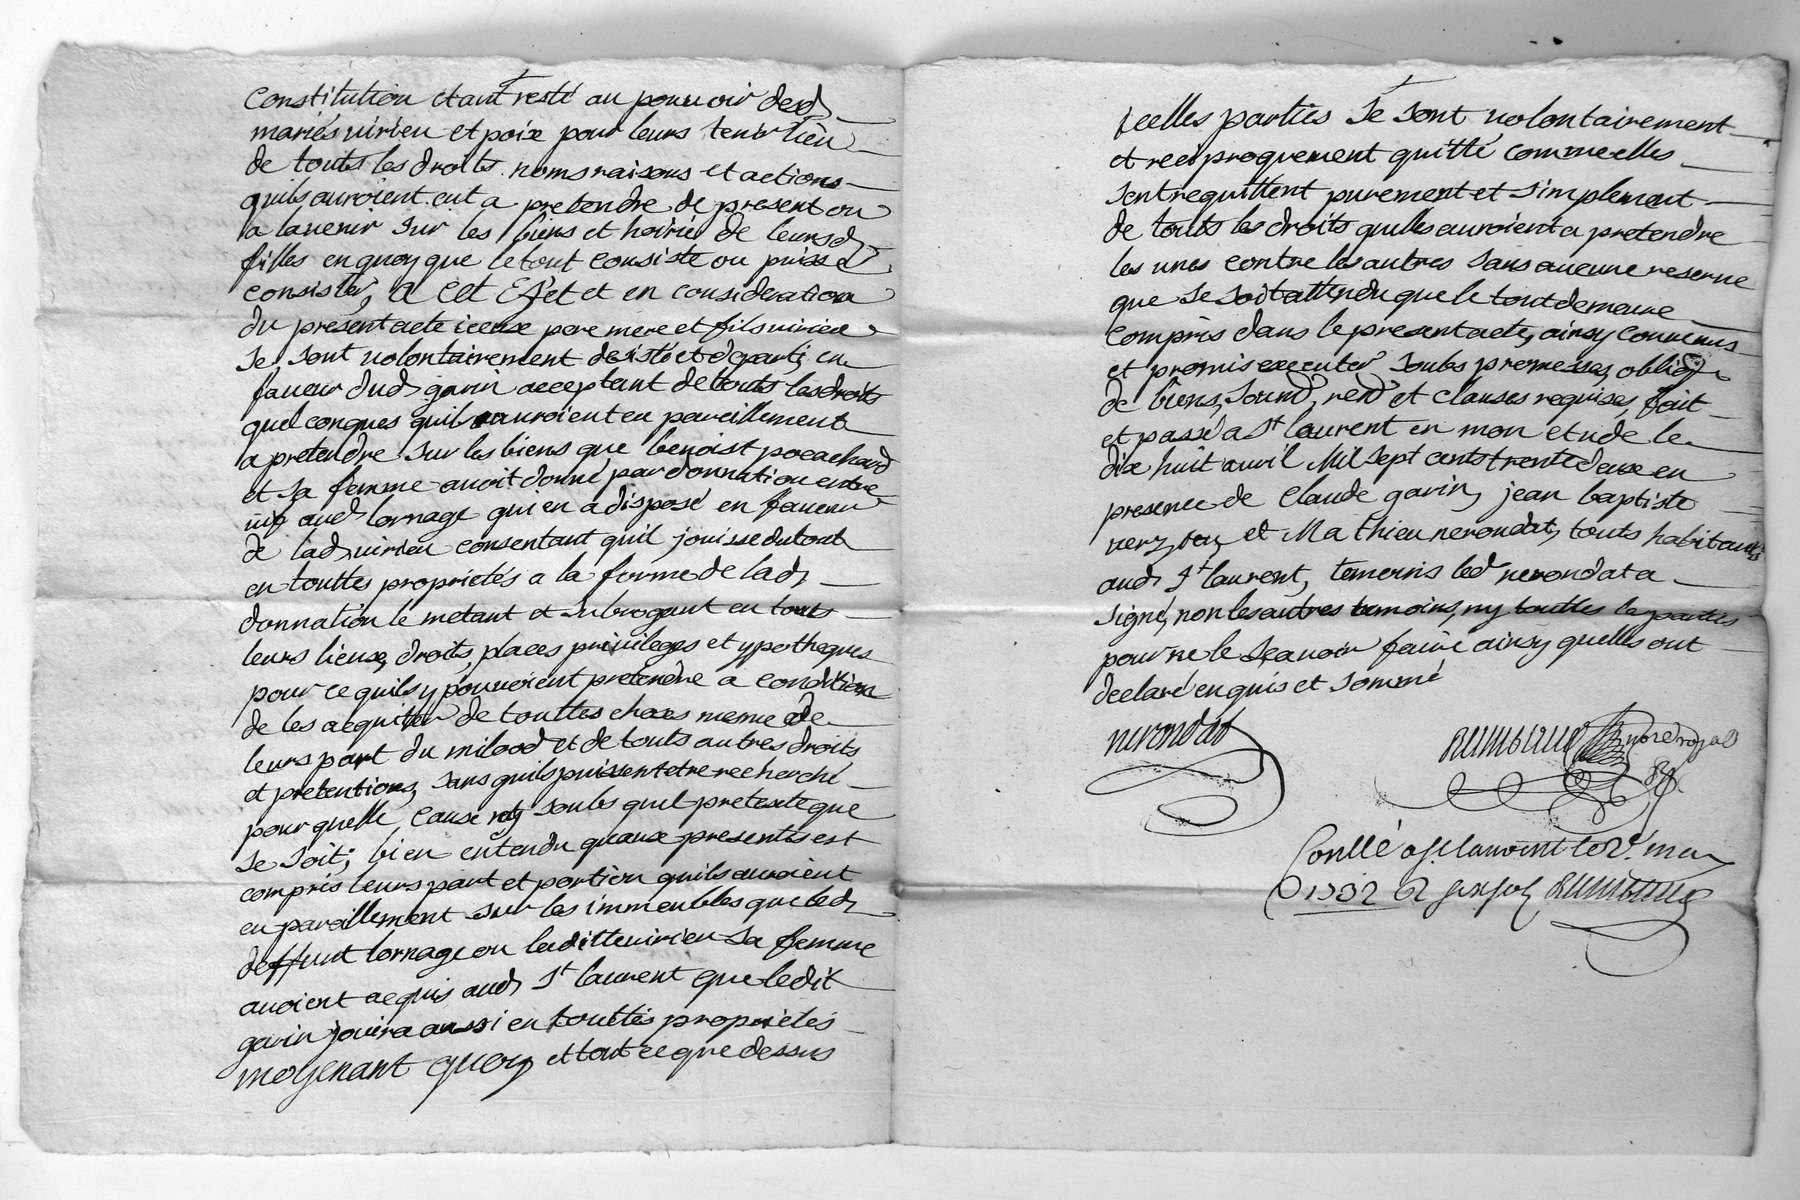 constitution etant resté au pouvoir desd
mariés virieu et poix pour leurs tenir lieu
de touts les droits noms raisons et actions
quils auroient eut a pretendre de present ou
a lavenir sur les biens et hoirie de leursd
filles en quoy que le tout consiste ou puisse
consister, a cet effet et en consideration
du present acte iceux pere mere et fils virieu
se sont volontairement desisté et departi en
faveur dud gavin acceptant de touts les droits
quelconques quils auroient eu pareillement
a pretendre sur les biens que benoist pocachard
et sa femme avoit donné par donnation entre
vifs aud lornage qui en a disposé en faveur
de lad virieu consentant quil jouisse du tout
en touttes proprietés a la forme de lad
donnation le metant et subrogant en touts
leurs lieux, droits, places privileges et ypotheques
pour ce quils y pouvoient pretendre a condition
de les acquiter de touttes choses meme de
leurs part du milaod et de touts autres droits
et pretentions, sans quils puissent etre recherché
pour quelle cause ny soubs quel pretexte que
se soit; bien entendu quaux presentes est
compris leurs part et portion quils auroient
eu pareillement sur les immeubles que led
deffunt lornage ou laditte virieu sa femme
avoient acquis aud St laurent que ledit
gavin jouira aussi en touttes proprietés
moyenant quoy et tout ce que dessus
icelles parties se sont volontairement
et reciproquement quitté comme elles
sentrequittent purement et simplement
de touts les droits quelles auroient a pretendre
les unes contre les autres sans aucune reserve
que se soit attendu que le tout demeure
compris dans le present acte, ainsy convenus
et promis executer soubs promesses, oblig
de biens, soumd, rend et clauses requises, fait
et passé a St laurent en mon etude le
dix huit avril mil sept cents trente deux en
presence de Claude gavin, jean baptiste
et Mathieu nerondat, touts habitants
aud St laurent, temoins led nerondat a
signé, non les autres temoins, ny touttes les parties
pour ne le sçavoir faire ainsy quelles ont
declaré enquis et sommé
nerondat
nore royal
Conllé a St laurent le may
1732